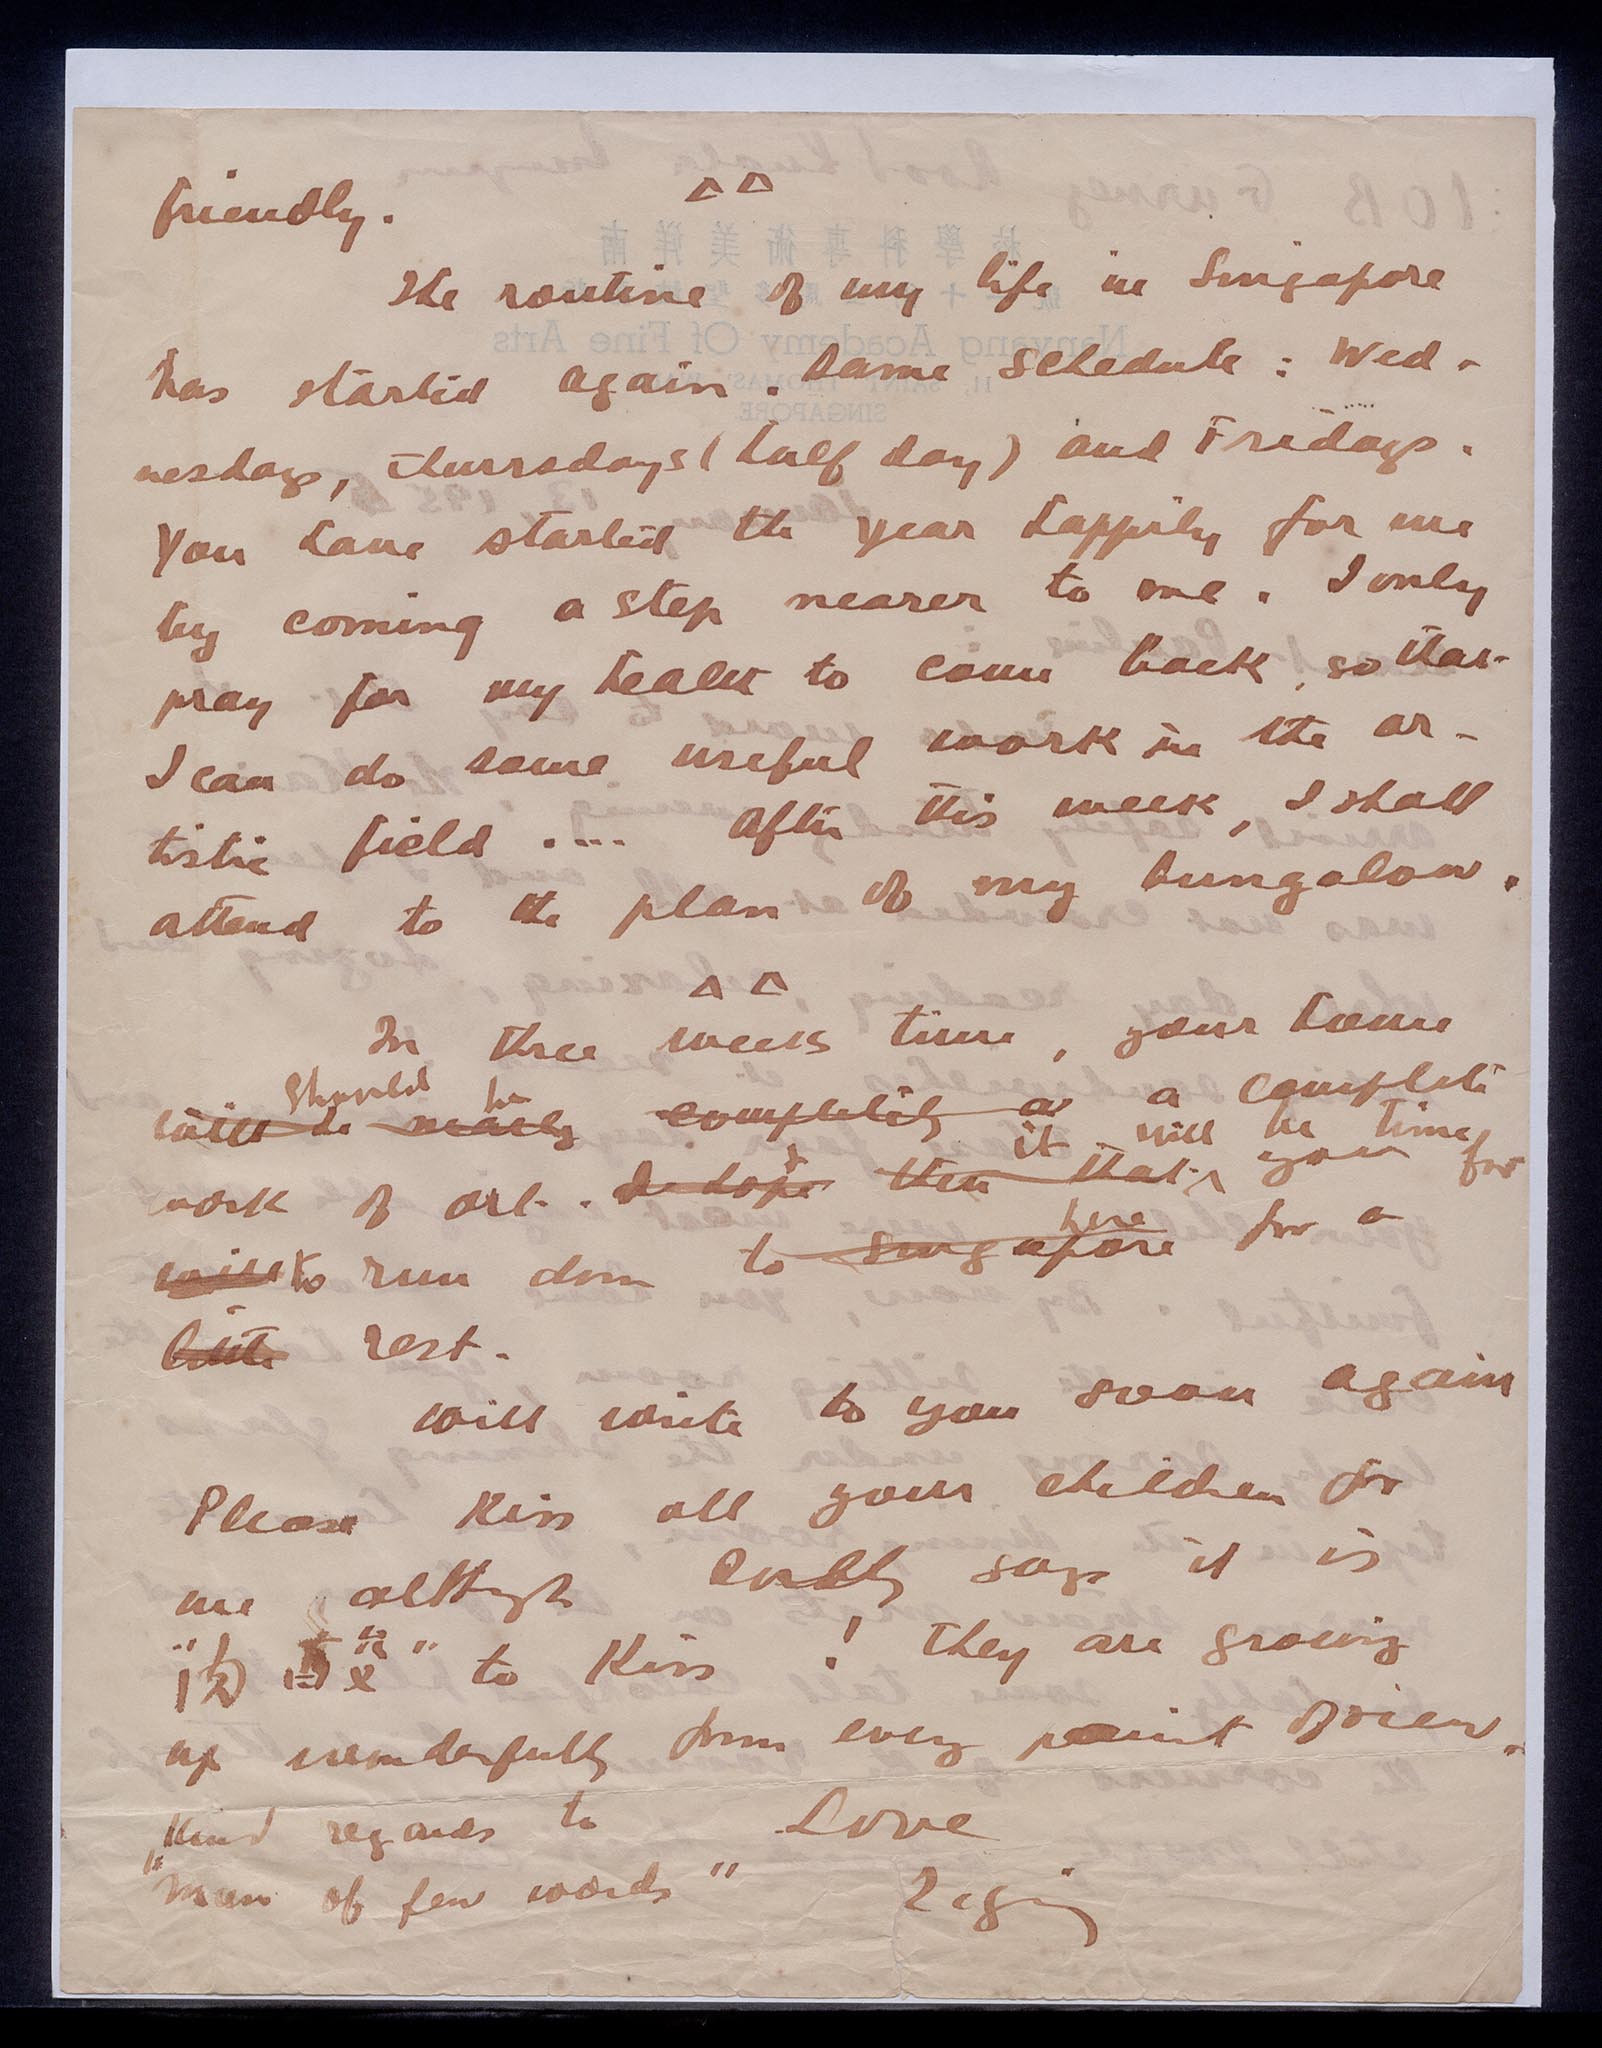 friendly.
The routine of my life in Singapore
has started again. Same schedule : Wed-
nesdays, Thursdays (half day) and Fridays.
You have started the year happily for me
by coming a step nearer to me. I only
pray for my health to come back, so that
I can do some useful work in the ar-
tistic field .... After this week, I shall
attend to the plan of my bungalow.
In three weeks time, your home
should be
will be nearly completely a a complete
it will be time
work of art. I hope then that you for
here
will to run down to Singapore for a
little rest.
Will write to you soon again
Please kiss all your children for
me although says it is
" " to kiss ! They are growing
up wonderfully from every point of view.
Kind regards to Love
"Man of few words"
Nanyang Academy Of Fine Arts
SINGAPORE